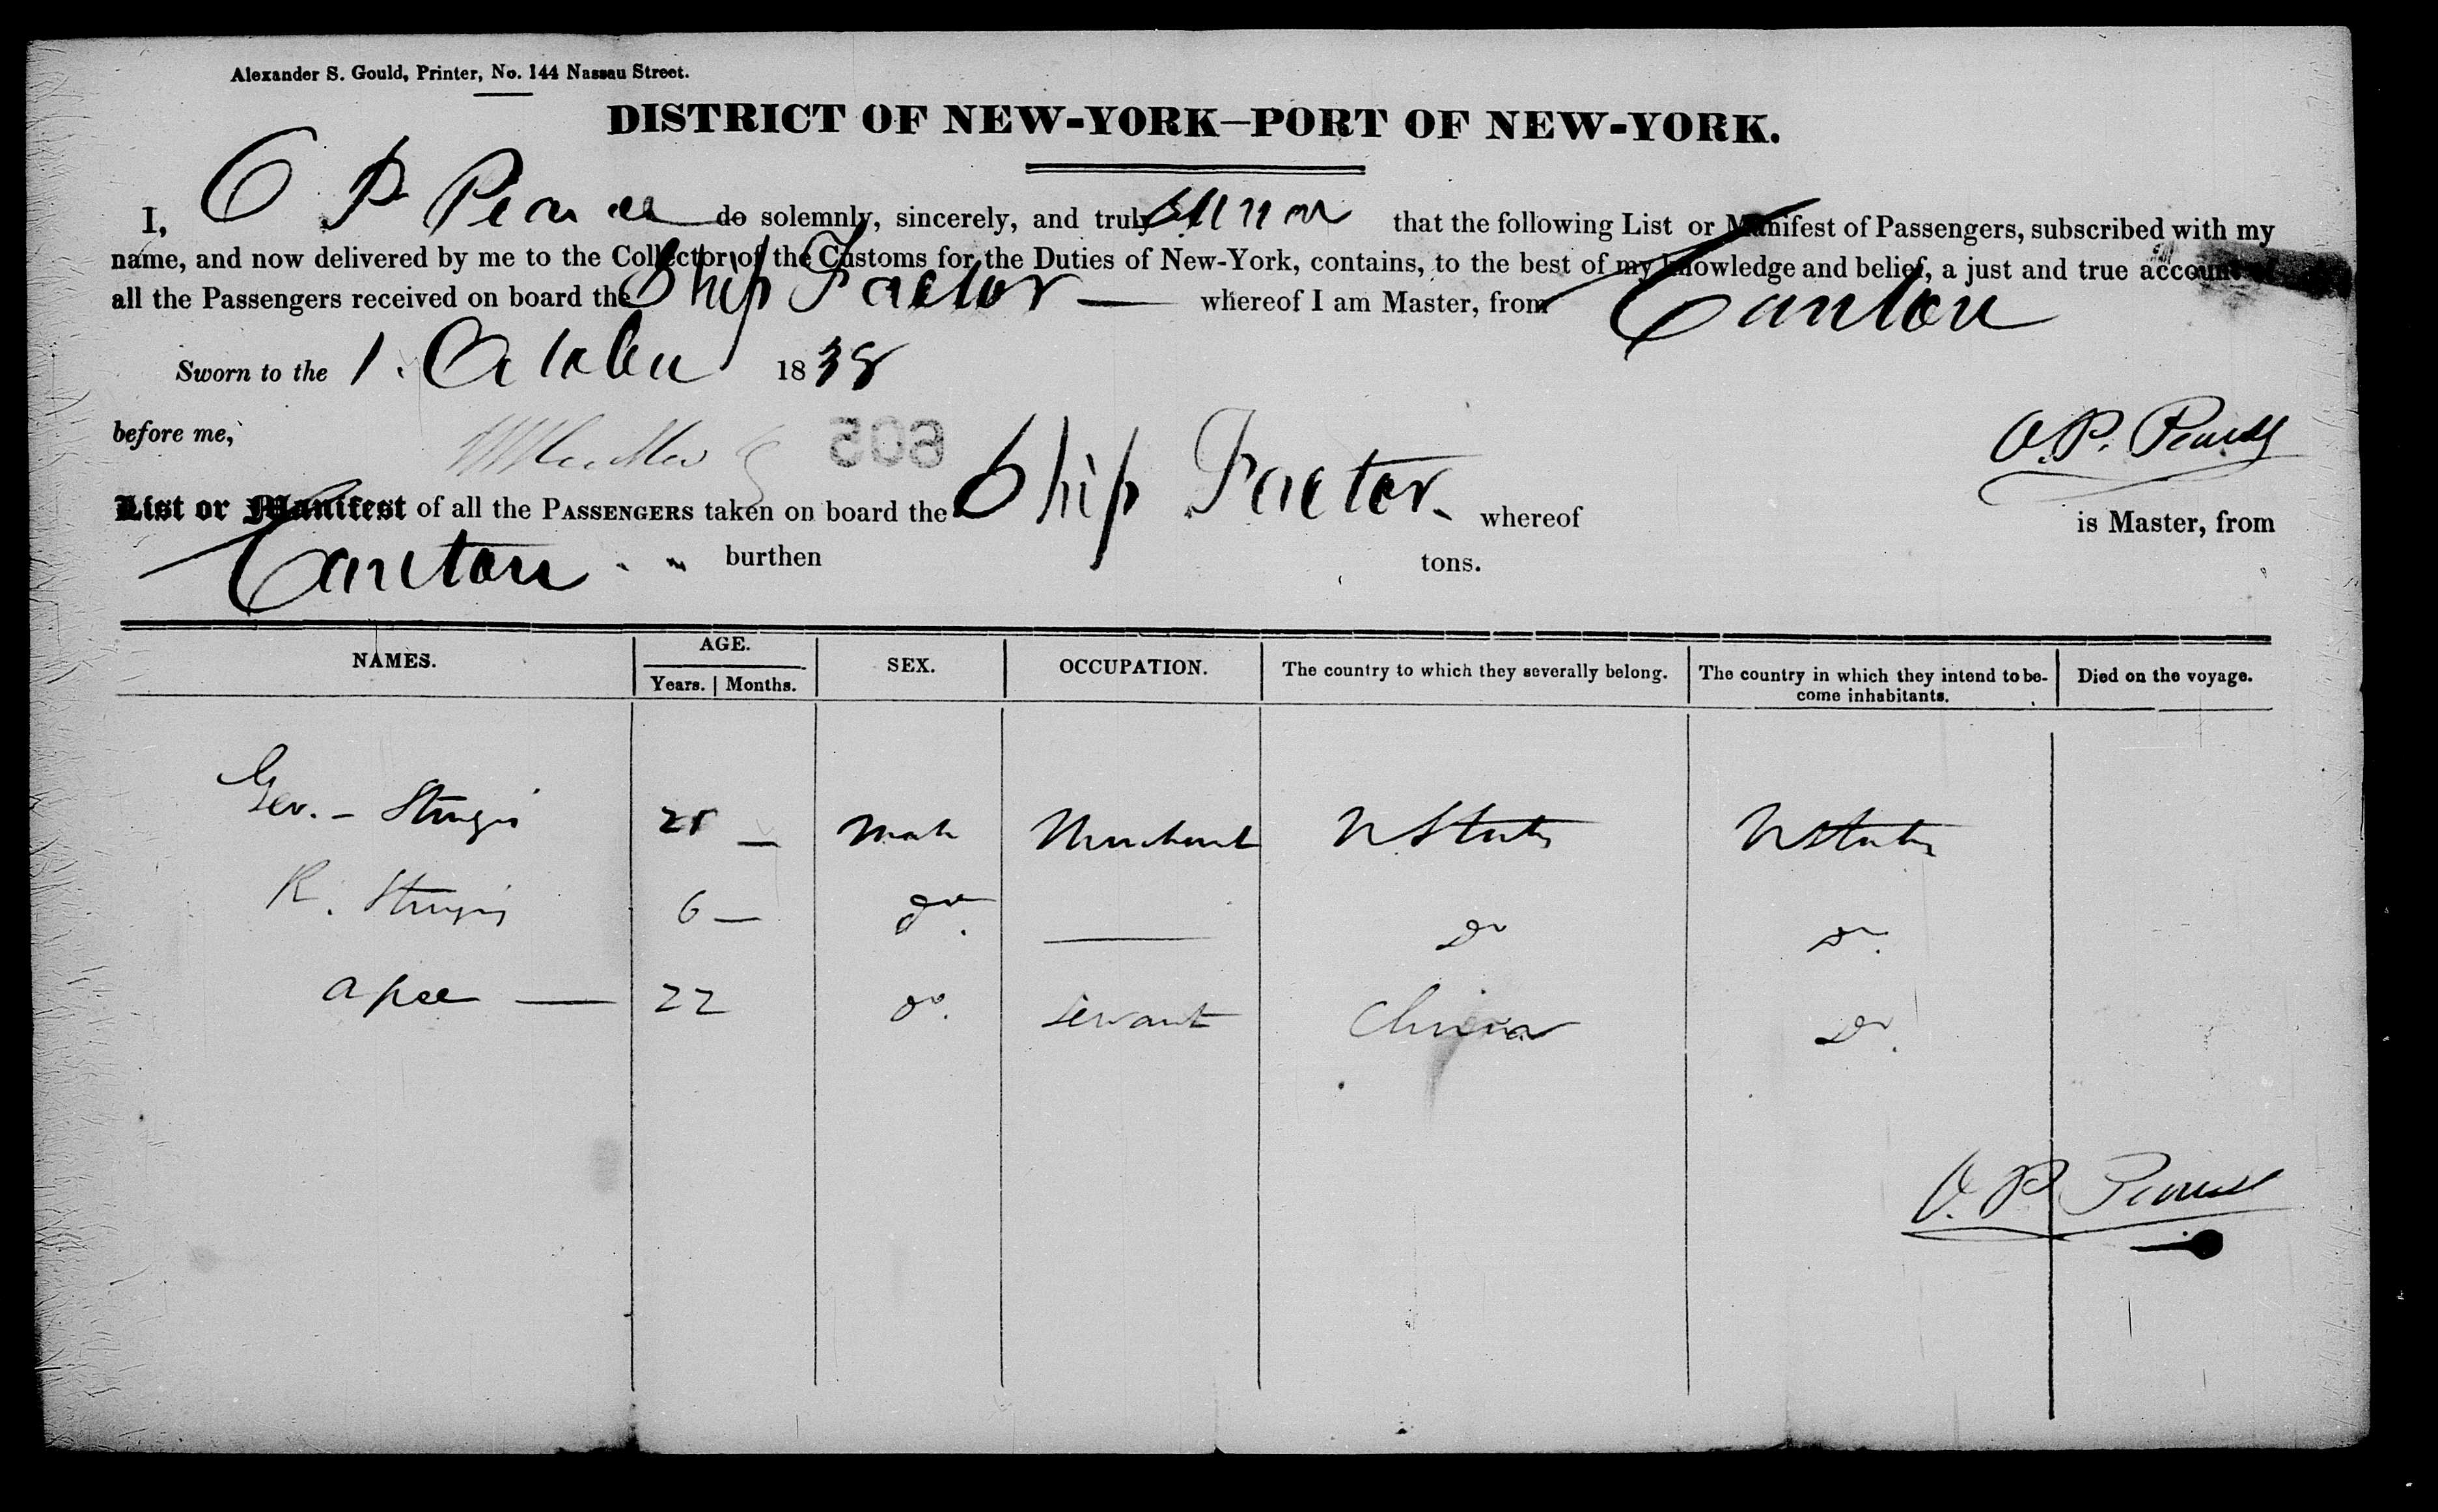 Alexander S. Gould, Printer, No. 144 Nassau Street.
DISTRICT OF NEW-YORK—PORT OF NEW-YORK.
I, O P Pearce do solemnly, sincerely, and truly swear that the following List or Manifest of Passengers, subscribed with my
name, and now delivered by me to the Collector of the Customs for the Duties of New-York, contains, to the best of my knowledge and belief, a just and true account of
all the Passengers received on board the Ship Factor — whereof I am Master, from Canton
Sworn to the 1. October 1838
before me,
605
O. P. Pearce
List or Manifest of all the PASSENGERS taken on board the Ship Factor. whereof is Master, from
Canton. " burthen tons.
NAMES. AGE. SEX. OCCUPATION. The country to which they severally belong. The country in which they intend to be- Died on the voyage.
Years. Months. come inhabitants.
Geo. - Sturgis — Male Merchant U States U States
R. Sturgis 6 — do. — Do Do.
apee — 22 do. servant China Do.
O. P. Pearce